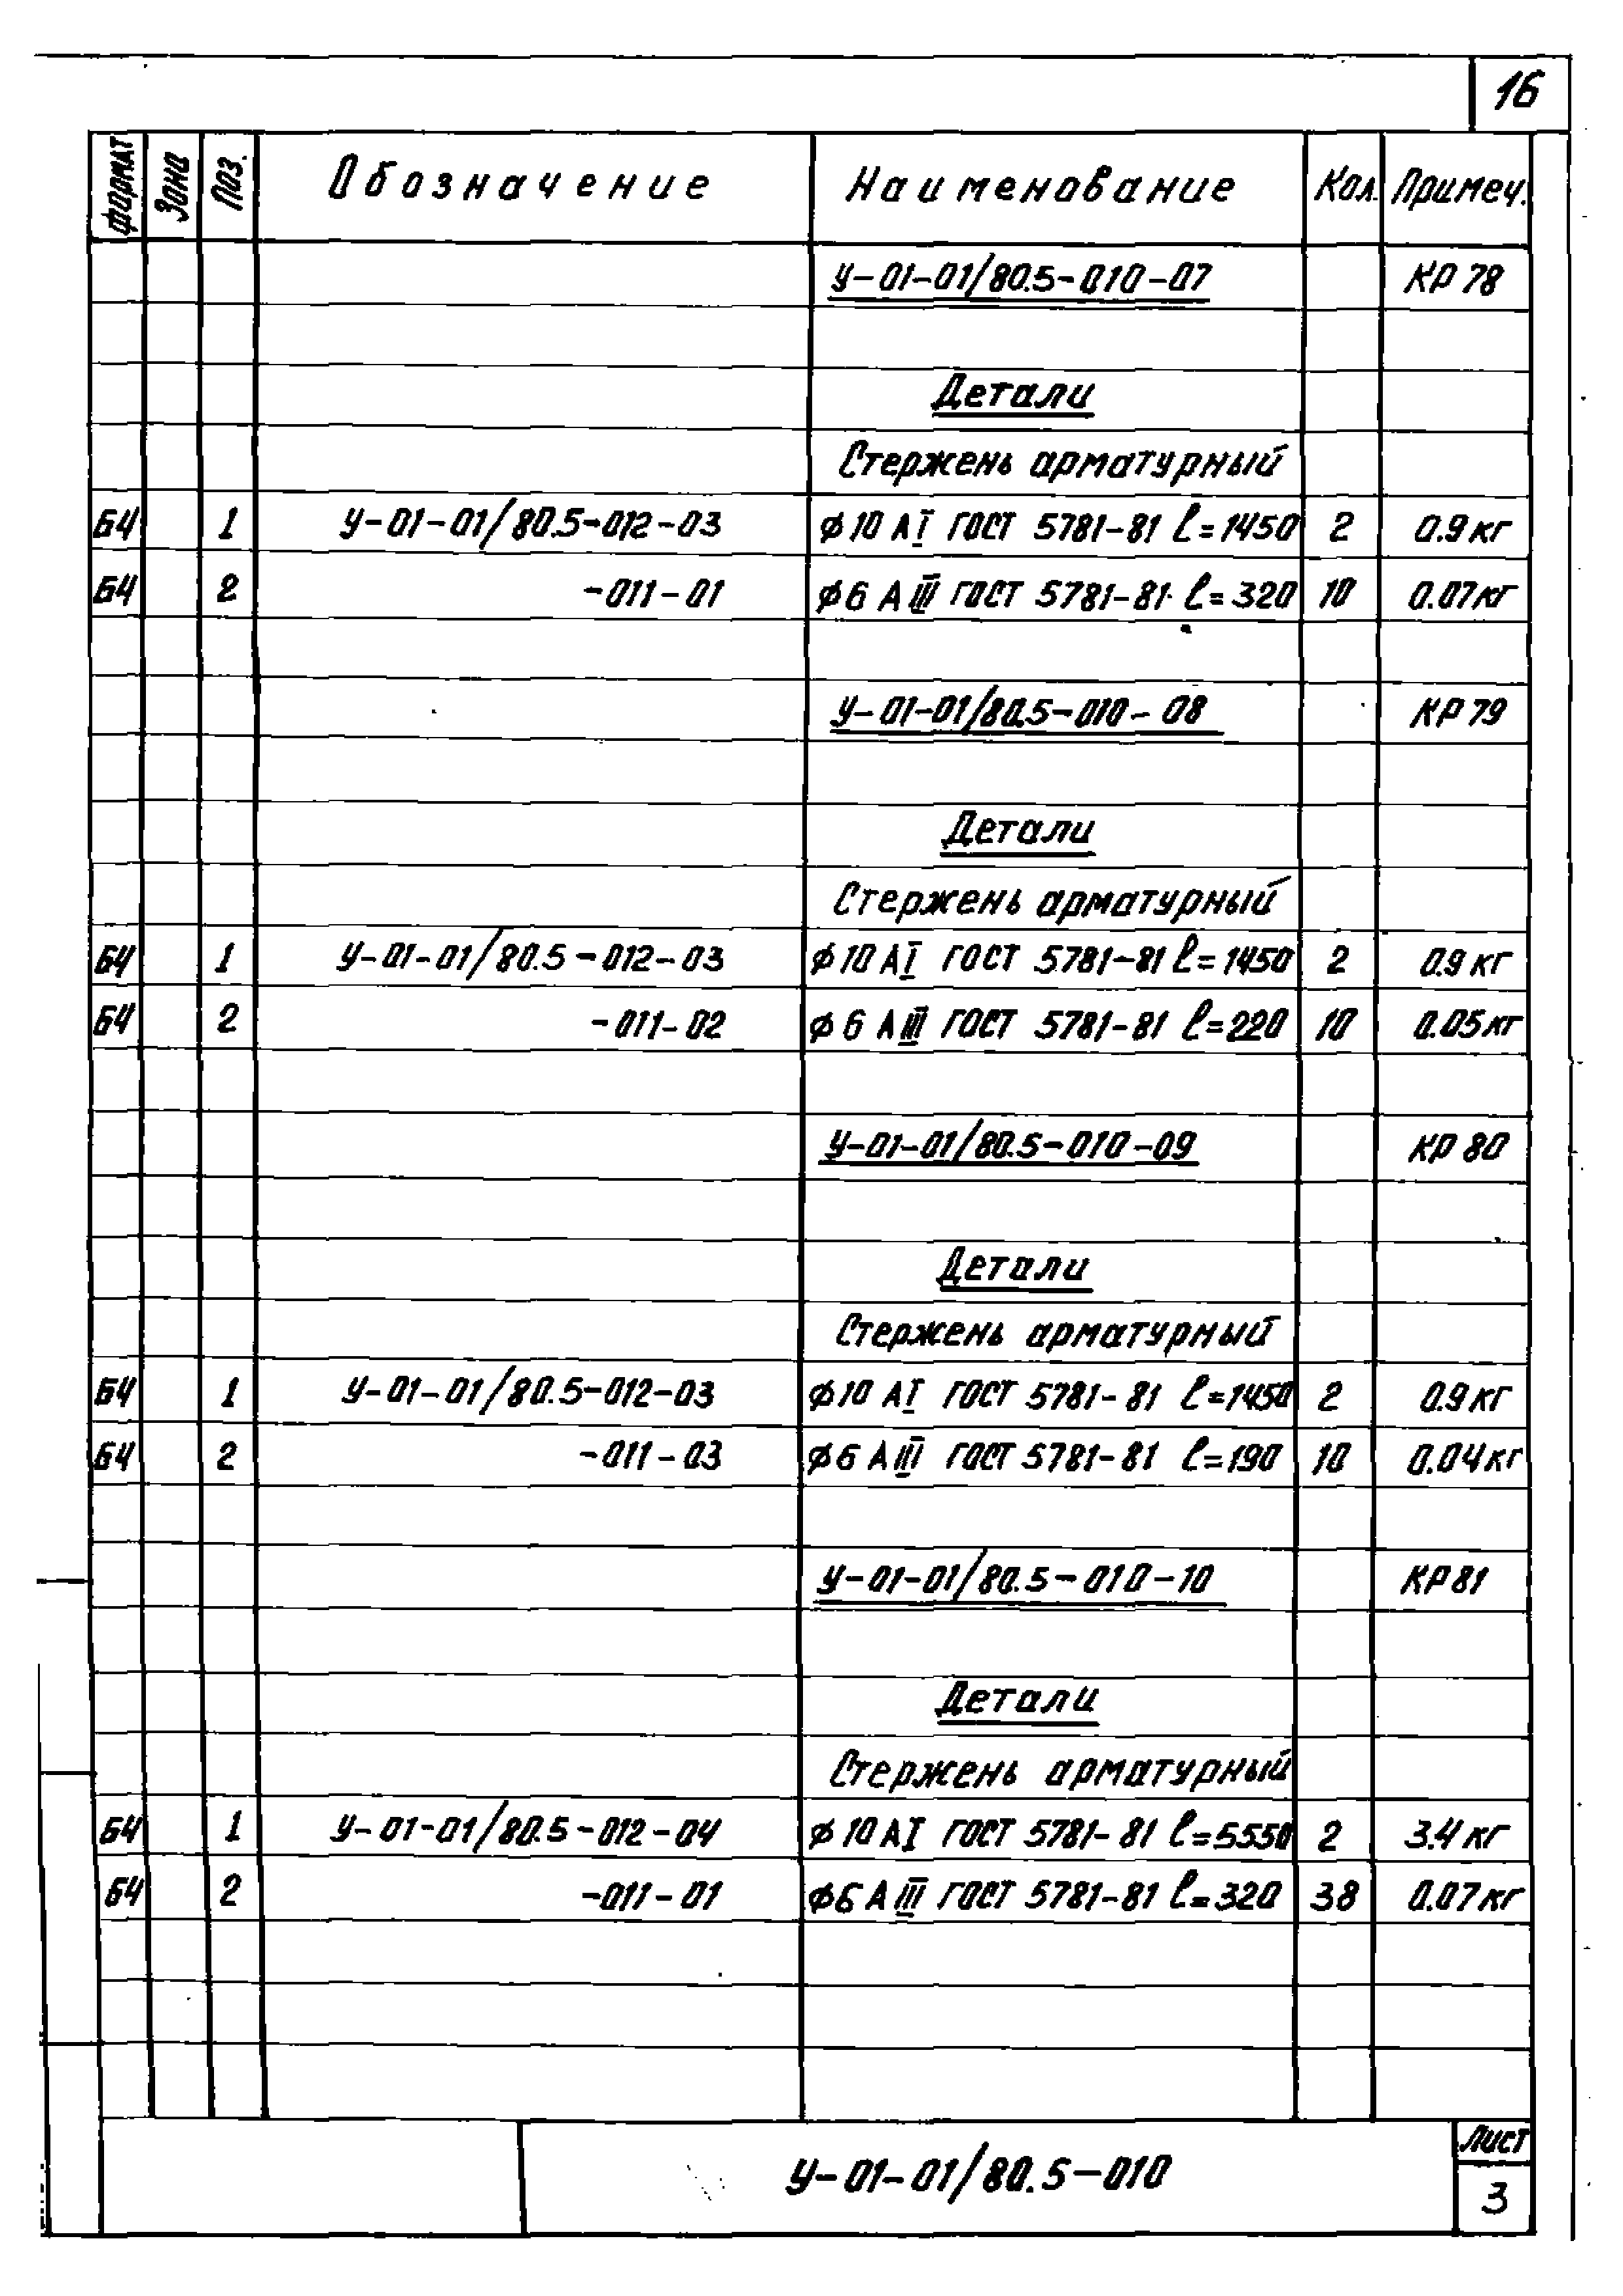 16
Формат Зона Поз. Обозначение Наименование Кол. Примеч.
У-01-01/80.5-010-07 КР 78
Детали
Стержень арматурный
БЧ 1 У-01-01/80.5-012-03 ϕ10 АI ГОСТ 5781-81 ℓ=1450 2 0.9кг
БЧ 2 -011-01 ϕ6 АIII ГОСТ 5781-81 ℓ=320 10 0.07кг
У-01-01/80.5-010-08 КР 79
Детали
Стержень арматурный
БЧ 1 У-01-01/80.5-012-03 ϕ10 АI ГОСТ 5781-81 ℓ=1450 2 0.9кг
БЧ 2 -011-02 ϕ6 АIII ГОСТ 5781-81 ℓ=220 10 0.05кг
У-01-01/80.5-010-09 КР 80
Детали
Стержень арматурный
БЧ 1 У-01-01/80.5-012-03 ϕ10 АI ГОСТ 5781-81 ℓ=1450 2 0.9кг
БЧ 2 -011-03 ϕ6 АIII ГОСТ 5781-81 ℓ=190 10 0.04кг
У-01-01/80.5-010-10 КР 81
Детали
Стержень арматурный
БЧ 1 У-01-01/80.5-012-04 ϕ10 АI ГОСТ 5781-81 ℓ=5550 2 3.4кг
БЧ 2 -011-01 ϕ6 АIII ГОСТ 5781-81 ℓ=320 38 0.07кг
Лист
У-01-01/80.5-010
3